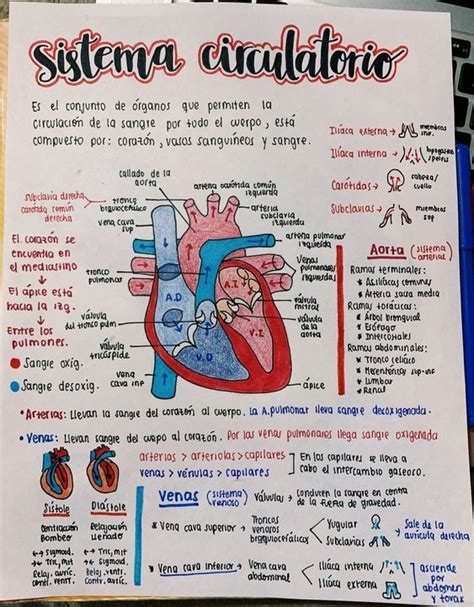 Sistema circulatorio
Es el conjunto de órganos que permiten la
circulación de la sangre por todo el cuerpo, está
compuesto por: corazón, vasos sanguíneos y sangre.
Ilíaca externa → miembros inf.
Ilíaca interna → hipogastrio/pelvis
Carótidas → cabeza/cuello
Subclavias → miembros sup
callado de la
aorta
arteria carótida común
izquierda
subclavia derecha
carótida común
derecha
tronco
braquiocefálico
vena cava
sup
arteria
subclavia
izquierda
arteria pulmonar
izquierda
venas
pulmonares
izquierdas
tronco
pulmonar
válvula
del tronco pulm
válvula
tricúspide
vena
cava inf
válvula
mitral
válvula
de la
aorta
ápice
A.D
A.I
V.D
V.I
El corazón se
encuentra en
el mediastino
↓
El ápice está
hacia la izq.
↓
Entre los
pulmones.
Sangre oxig.
Sangre desoxig.
Aorta (sistema arterial)
Ramas terminales:
* As ilíacas comunes
* Arteria sacra media
Ramas torácicas:
* Árbol bronquial
* Esófago
* Intercostales
Ramas abdominales:
* Tronco celíaco
* Mesentérica sup-inf
* Lumbar
* Renal
• Arterias: Llevan la sangre del corazón al cuerpo. La A.pulmonar lleva sangre desoxigenada.
• Venas: Llevan sangre del cuerpo al corazón. Por las venas pulmonares llega sangre oxigenada
arterias > arteriolas > capilares
venas > vénulas > capilares
En los capilares se lleva a
cabo el intercambio gaseoso.
Sístole
Contracción
Bombeo
←→ Sigmoid.
→← Tri, mit
Relaj. auríc.
Contr. ventr.
Diástole
Relajación
Llenado
←→ Tri, mit
→← Sigmoid.
Relaj. ventr.
Contr. auríc.
Venas (sistema venoso) Válvulas → conducen la sangre en contra
de la fuerza de gravedad.
* Vena cava superior → Troncos
venosos
braquiocefálicos
Yugular
Subclavias
Sale de la
aurícula derecha
* Vena cava inferior → Vena cava
abdominal
Ilíaca interna
Ilíaca externa
asciende
por
abdomen
y tórax